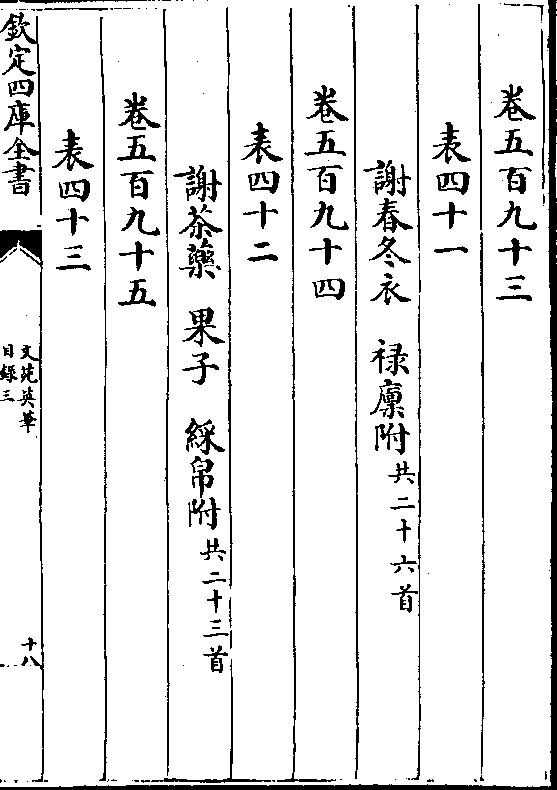 卷五百九十三
表四十一
謝春冬衣　祿廩附共二十六首
卷五百九十四
表四十二
謝茶藥　果子　綵帛附共二十三首
卷五百九十五
表四十三
欽定四庫全書
文苑英華
目錄三
十八